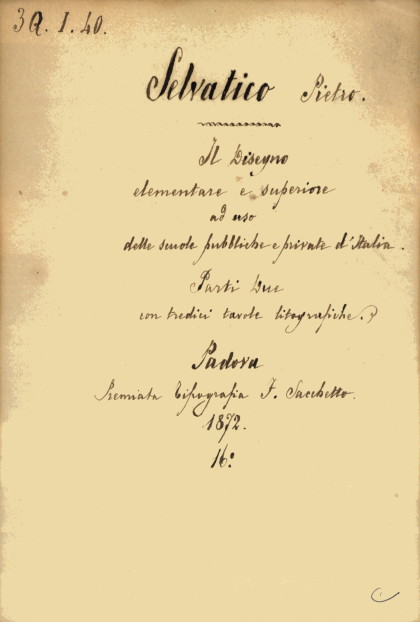 3Q. I. 40.
Selvatico Pietro.
Il Disegno
elementare e superiore
ad uso
delle scuole pubbliche e private d'Italia.
Parti Due
con tredici tavole litografiche.
Padova
Premiata Tipografia F. Sacchetto.
1872.
16º